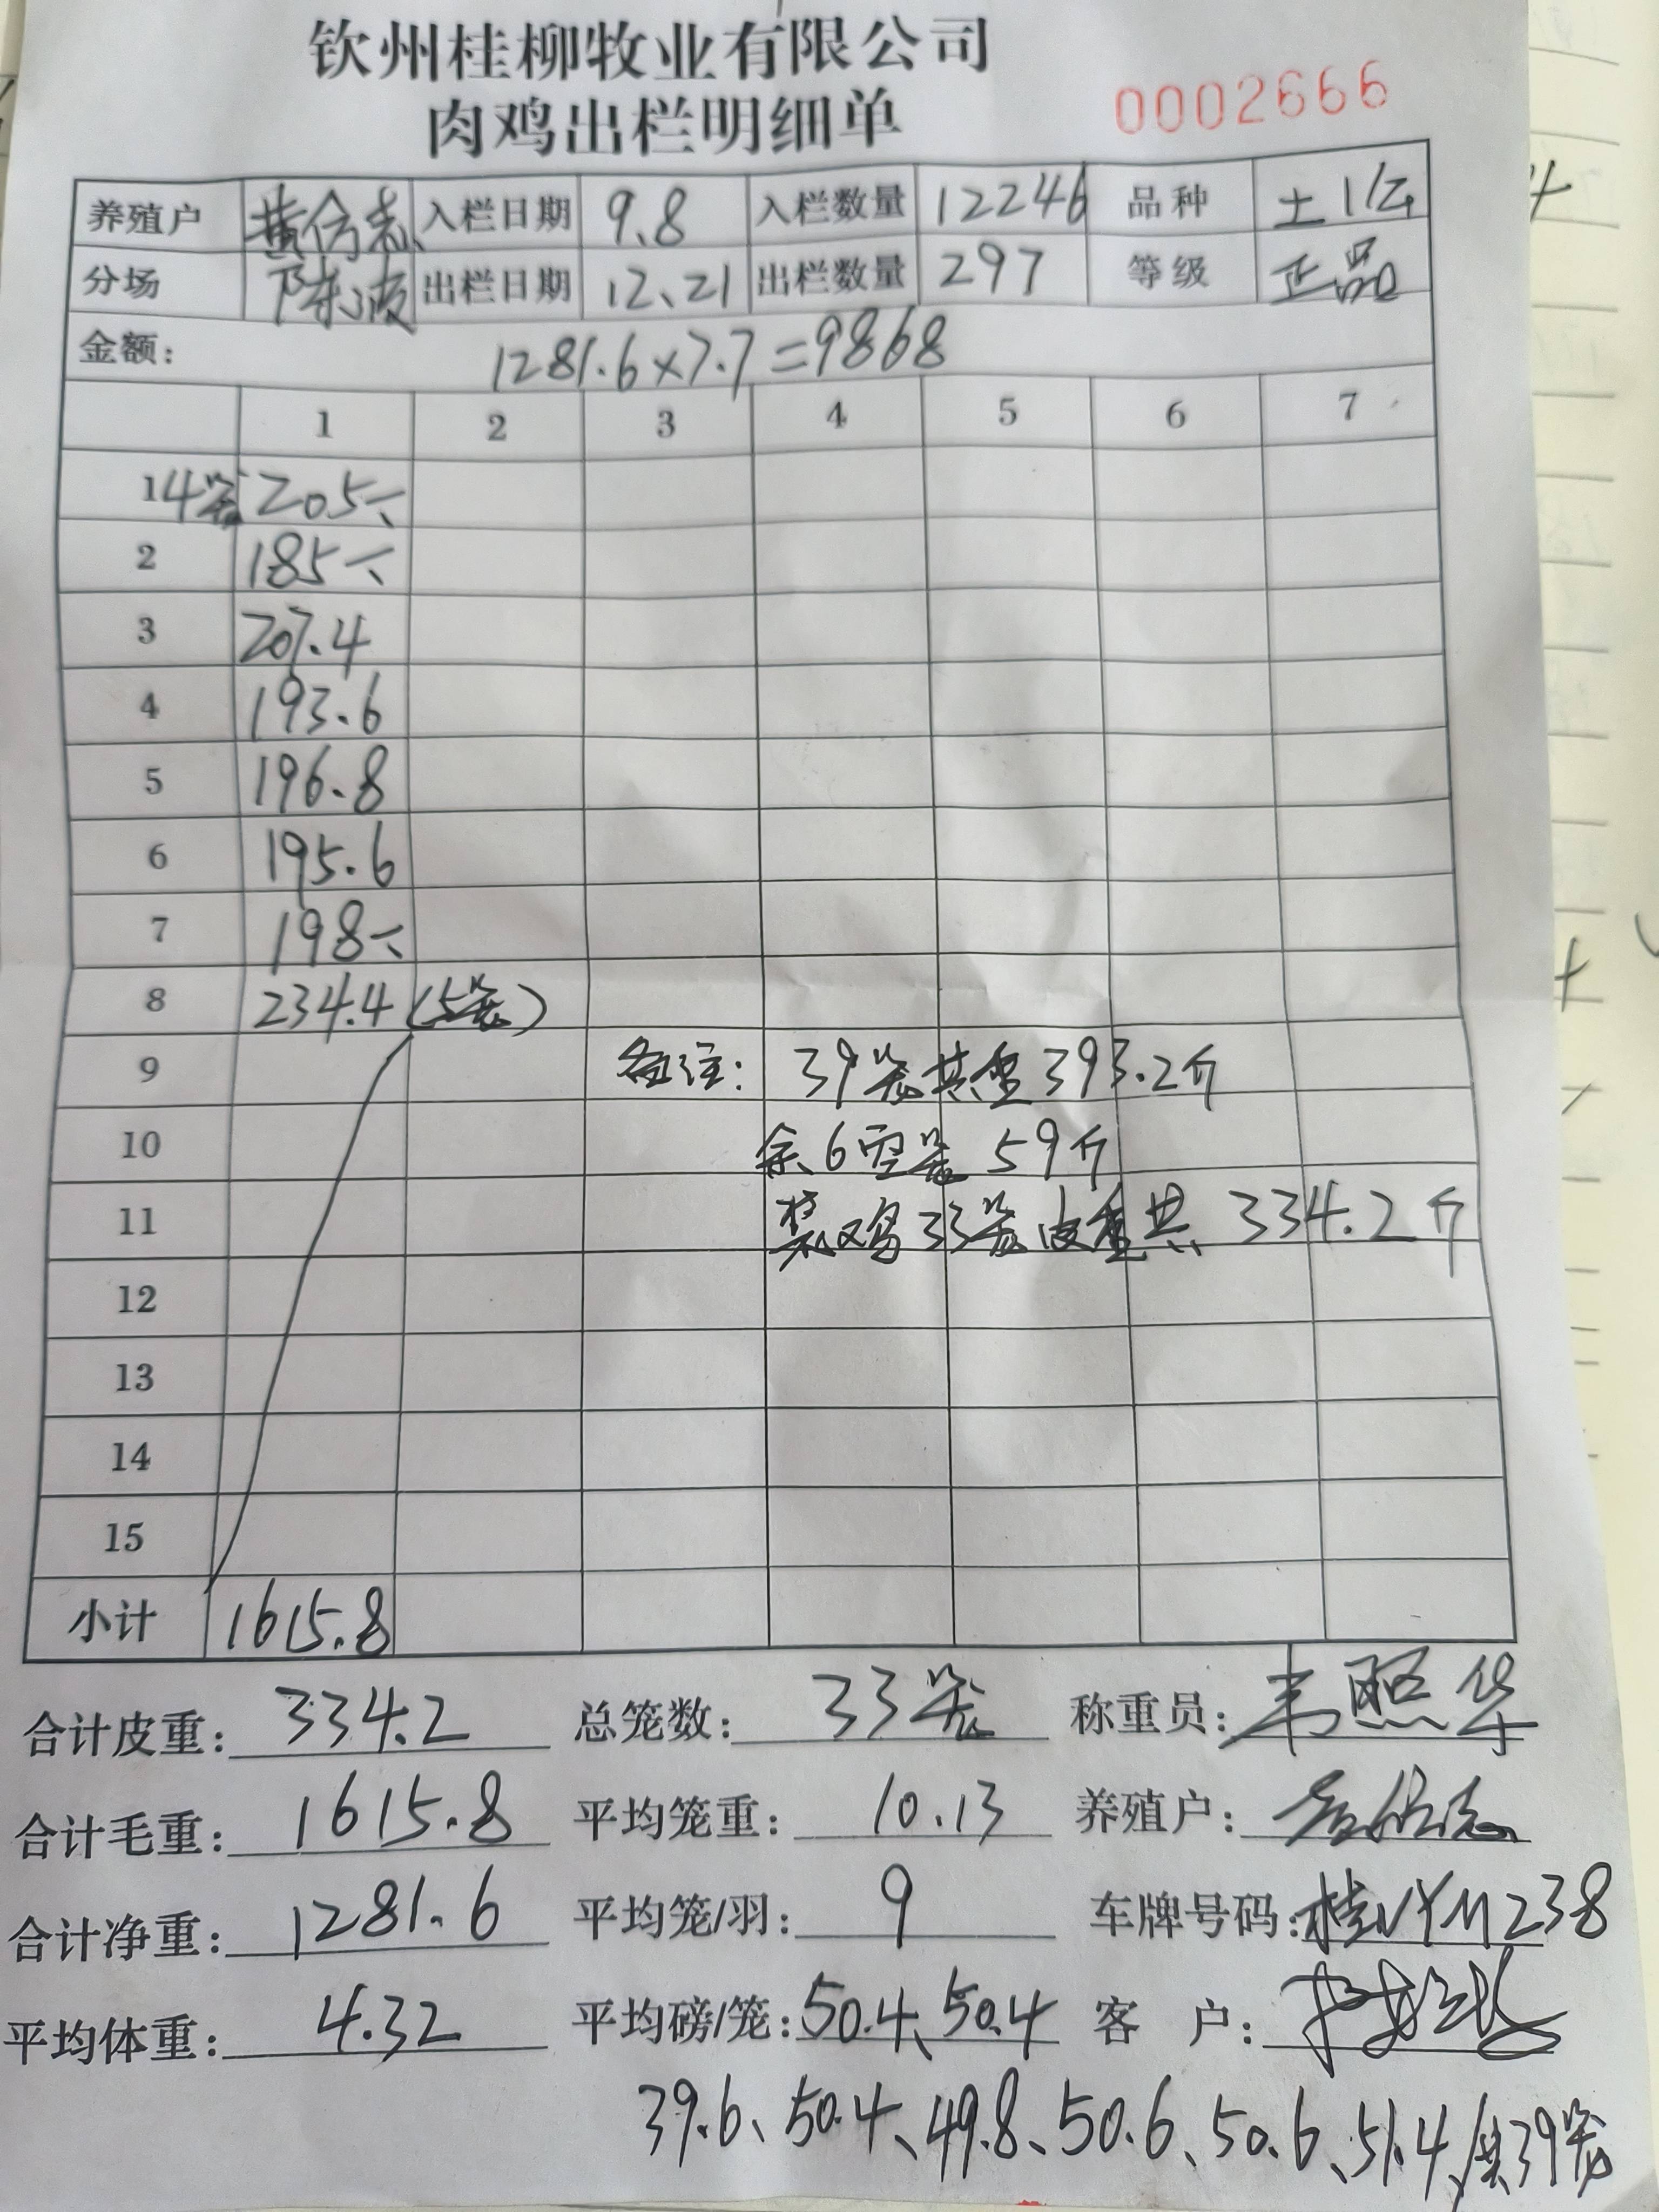 钦州桂柳牧业有限公司
肉鸡出栏明细单 0002666
养殖户 入栏日期 9.8 入栏数量 12246 品种 土1
分场 陈波 出栏日期 12、21 出栏数量 297 等级 正品
金额： 1281.6×7.7=9868
1 2 3 4 5 6 7
1 4笼 205
2 185
3 207.4
4 193.6
5 196.8
6 195.6
7 198
8 234.4 (5笼)
9 备注: 39笼共重393.2斤
10 余6空笼 59斤
11 装鸡33笼皮重共 334.2斤
12
13
14
15
小计 1615.8
合计皮重: 334.2 总笼数: 33笼 称重员: 韦照华
合计毛重: 1615.8 平均笼重: 10.13 养殖户:
合计净重: 1281.6 平均笼/羽: 9 车牌号码: 桂NYM238
平均体重: 4.32 平均磅/笼: 50.4、50.4 客 户:
39.6、50.4、49.8、50.6、50.6、51.4/共39笼